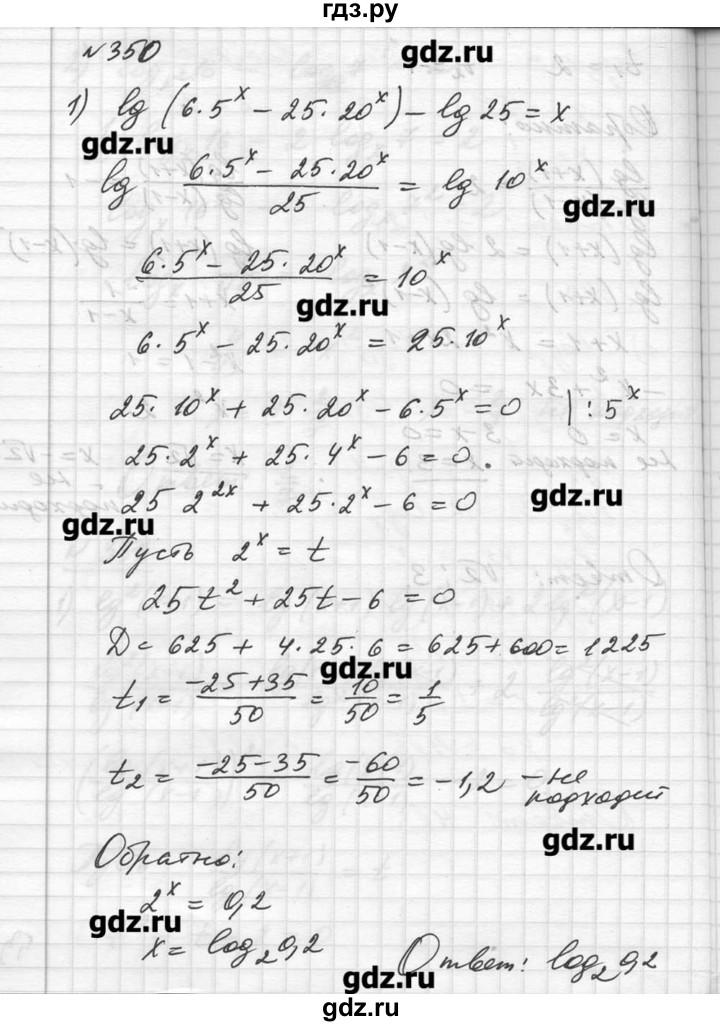 гдз.ру
№350
gdz.ru
1) lg (6·5^x − 25·20^x) − lg 25 = x
gdz.ru
lg (6·5^x − 25·20^x)/25 = lg 10^x
gdz.ru
(6·5^x − 25·20^x)/25 = 10^x
gdz.ru
6·5^x − 25·20^x = 25·10^x
25·10^x + 25·20^x − 6·5^x = 0 |:5^x
25·2^x + 25·4^x − 6 = 0.
gdz.ru
25 2^2x + 25·2^x − 6 = 0
gdz.ru
Пусть 2^x = t
25t² + 25t − 6 = 0
D = 625 + 4·25·6 = 625+600 = 1225
gdz.ru
t₁ = (−25+35)/50 = 10/50 = 1/5
t₂ = (−25−35)/50 = −60/50 = −1,2 − не подходит
gdz.ru
Обратно:
2^x = 0,2
gdz.ru
x = log₂0,2
Ответ: log₂0,2
gdz.ru
gdz.ru